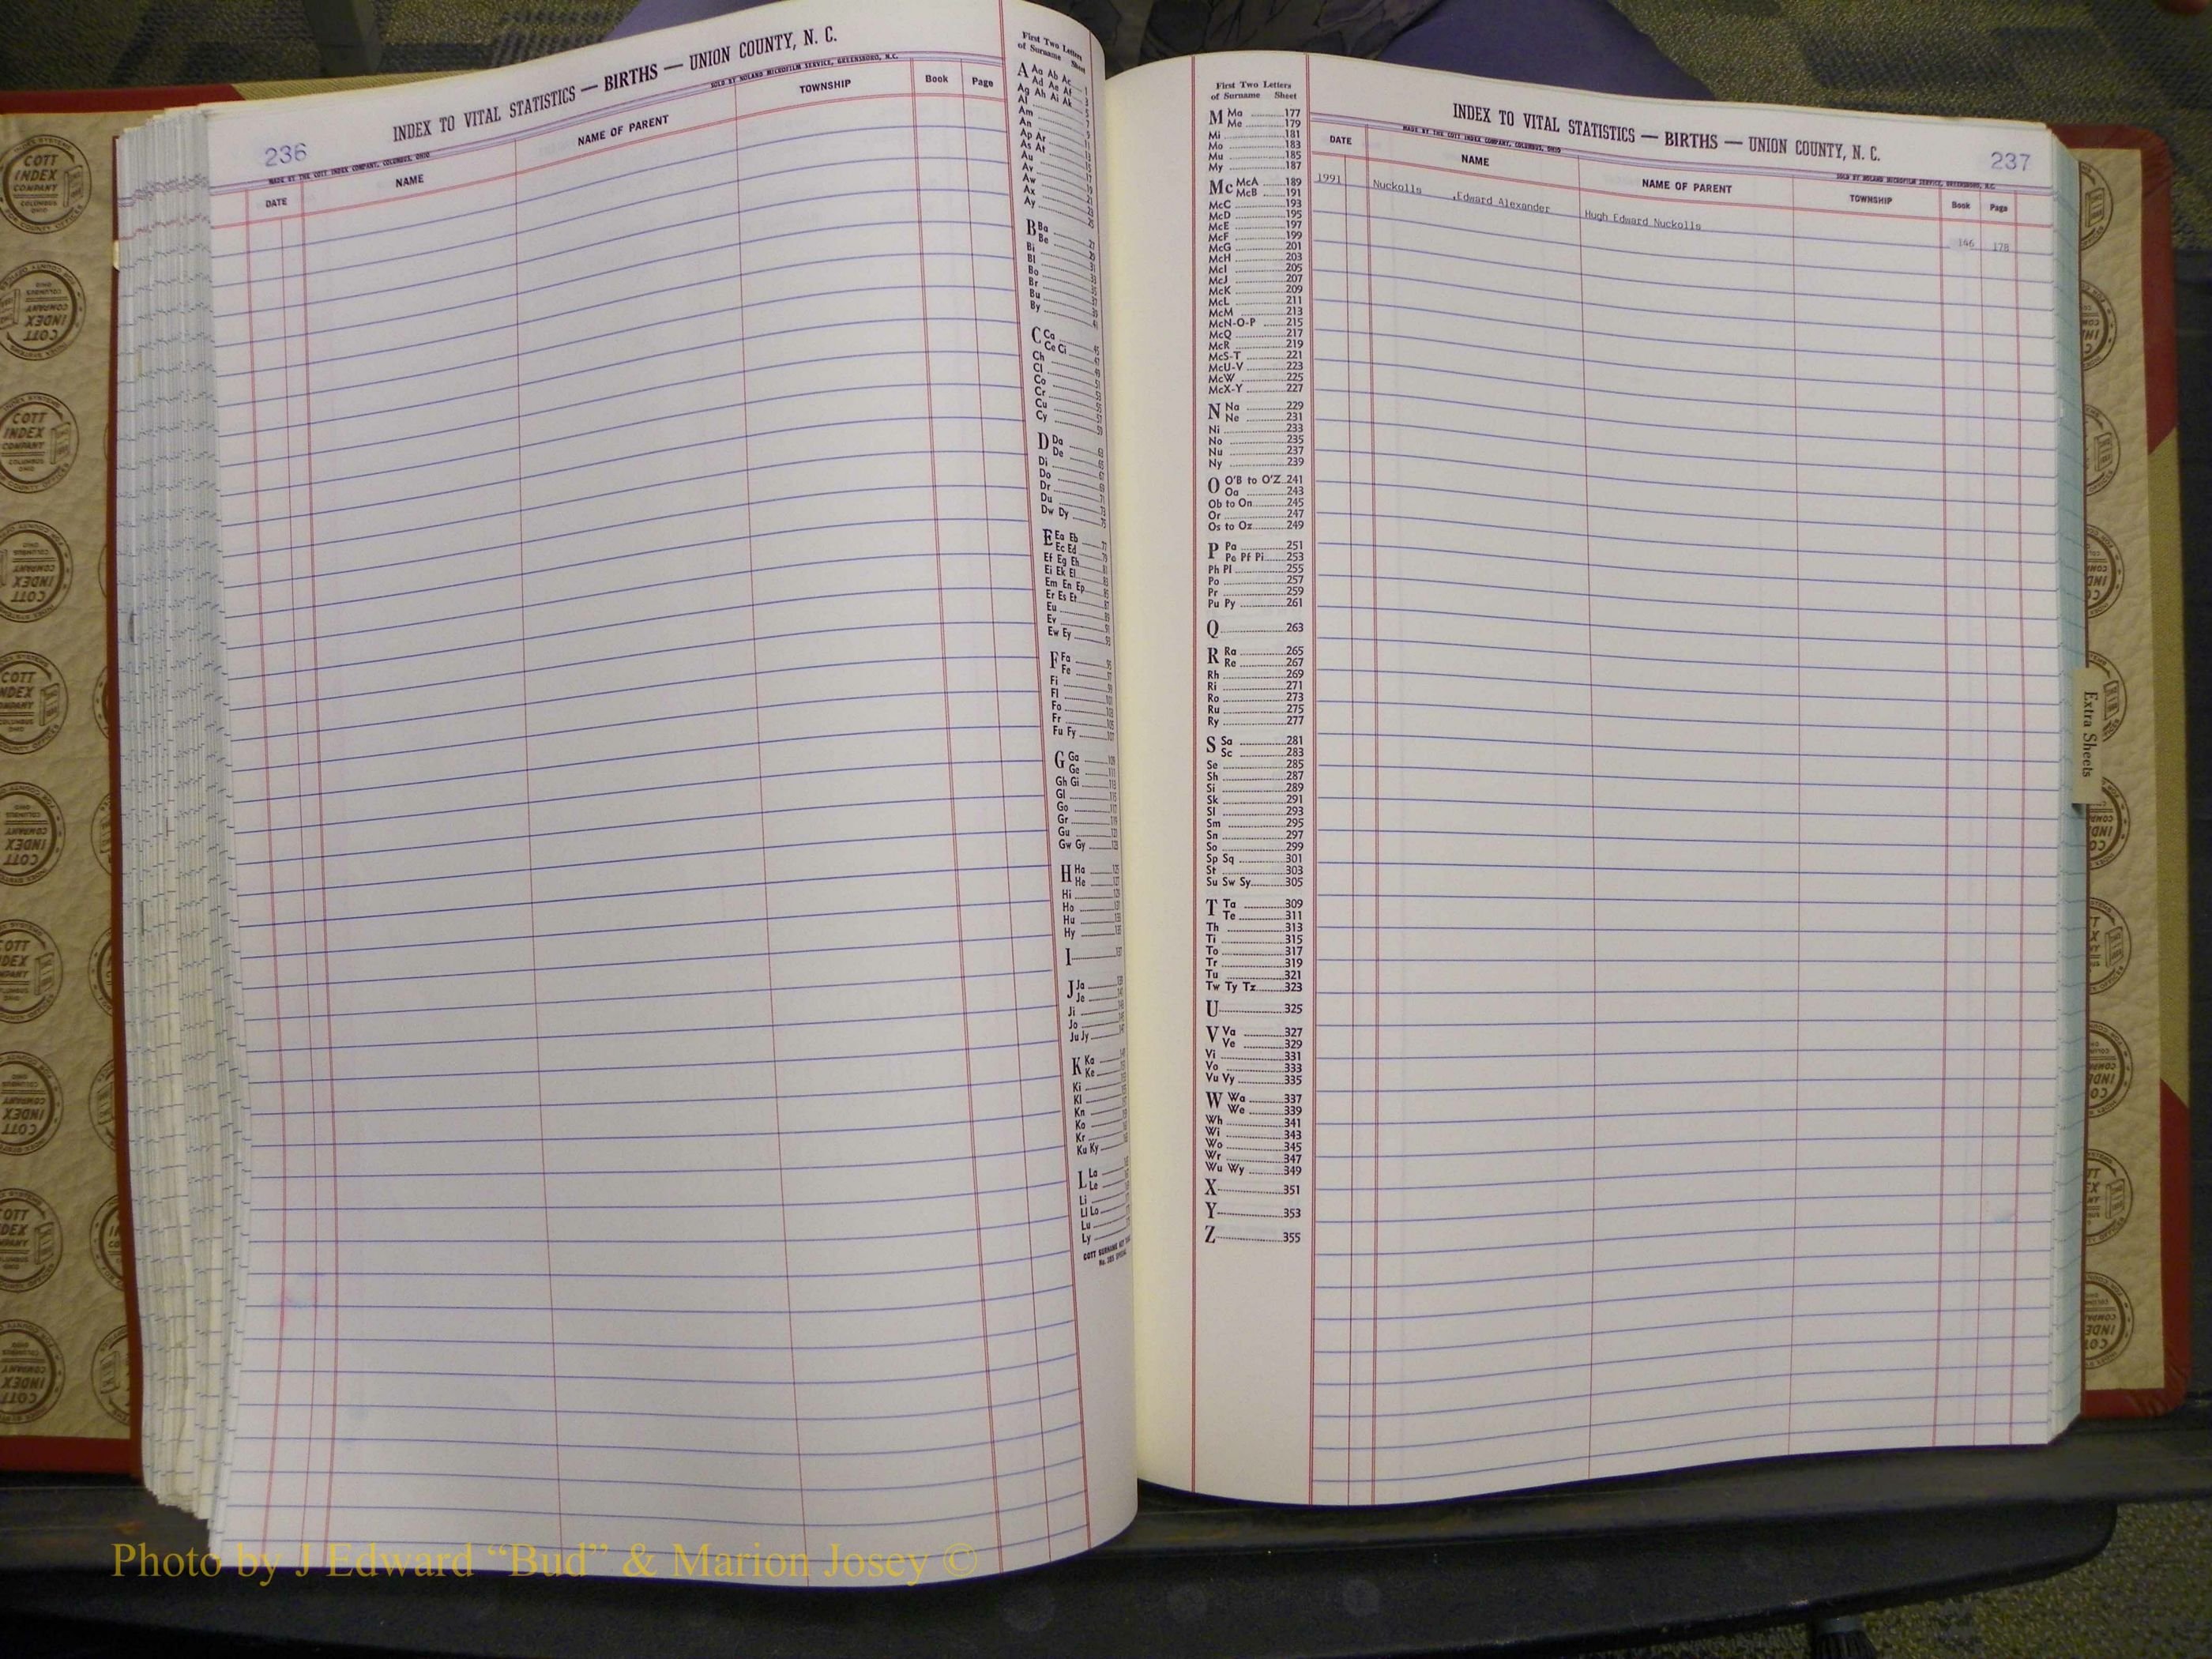 236
INDEX TO VITAL STATISTICS — BIRTHS — UNION COUNTY, N. C.
MADE BY THE COTT INDEX COMPANY, COLUMBUS, OHIO
SOLD BY NOLAND MICROFILM SERVICE, GREENSBORO, N.C.
DATE NAME NAME OF PARENT TOWNSHIP Book Page
First Two Letters
of Surname Sheet
A Aa Ab Ac
Ad Ae Af
Ag Ah Ai Ak
Al
Am
An
Ap Ar
As At
Au
Av
Aw
Ax
Ay
B Ba
Be
Bi
Bl
Bo
Br
Bu
By
C Ca
Ce Ci
Ch
Cl
Co
Cr
Cu
Cy
D Da
De
Di
Do
Dr
Du
Dw Dy
E Ea Eb
Ec Ed
Ef Eg Eh
Ei Ek El
Em En Ep
Er Es Et
Eu
Ev
Ew Ey
F Fa
Fe
Fi
Fl
Fo
Fr
Fu Fy
G Ga
Ge
Gh Gi
Gl
Go
Gr
Gu
Gw Gy
H Ha
He
Hi
Ho
Hu
Hy
I
J Ja
Je
Ji
Jo
Ju Jy
K Ka
Ke
Ki
Kl
Kn
Ko
Kr
Ku Ky
L La
Le
Li
Ll Lo
Lu
Ly
First Two Letters
of Surname Sheet
M Ma 177
Me 179
Mi 181
Mo 183
Mu 185
My 187
Mc McA 189
McB 191
McC 193
McD 195
McE 197
McF 199
McG 201
McH 203
McI 205
McJ 207
McK 209
McL 211
McM 213
McN-O-P 215
McQ 217
McR 219
McS-T 221
McU-V 223
McW 225
McX-Y 227
N Na 229
Ne 231
Ni 233
No 235
Nu 237
Ny 239
O O'B to O'Z 241
Oa 243
Ob to On 245
Or 247
Os to Oz 249
P Pa 251
Pe Pf Pi 253
Ph Pl 255
Po 257
Pr 259
Pu Py 261
Q 263
R Ra 265
Re 267
Rh 269
Ri 271
Ro 273
Ru 275
Ry 277
S Sa 281
Sc 283
Se 285
Sh 287
Si 289
Sk 291
Sl 293
Sm 295
Sn 297
So 299
Sp Sq 301
St 303
Su Sw Sy 305
T Ta 309
Te 311
Th 313
Ti 315
To 317
Tr 319
Tu 321
Tw Ty Tz 323
U 325
V Va 327
Ve 329
Vi 331
Vo 333
Vu Vy 335
W Wa 337
We 339
Wh 341
Wi 343
Wo 345
Wr 347
Wu Wy 349
X 351
Y 353
Z 355
INDEX TO VITAL STATISTICS — BIRTHS — UNION COUNTY, N. C.
237
MADE BY THE COTT INDEX COMPANY, COLUMBUS, OHIO
SOLD BY NOLAND MICROFILM SERVICE, GREENSBORO, N.C.
DATE NAME NAME OF PARENT TOWNSHIP Book Page
1991 Nuckolls ,Edward Alexander Hugh Edward Nuckolls 146 178
Extra Sheets
COTT
INDEX
COMPANY
COLUMBUS
OHIO
Photo by J Edward “Bud” & Marion Josey ©